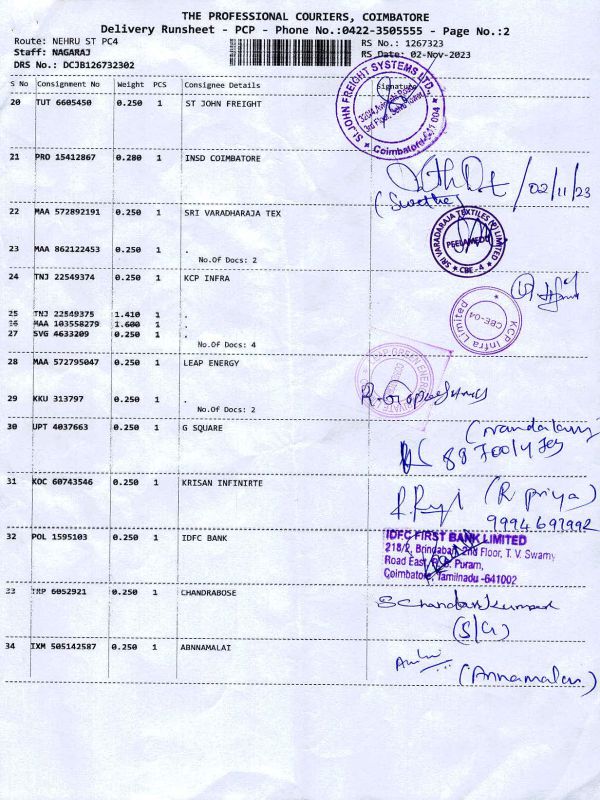 THE PROFESSIONAL COURIERS, COIMBATORE
Delivery Runsheet - PCP - Phone No.:0422-3505555 - Page No.:2
Route: NEHRU ST PC4 RS No.: 1267323
Staff: NAGARAJ RS Date: 02-Nov-2023
DRS No.: DCJB126732302
S No Consignment No Weight PCS Consignee Details Signature
20 TUT 6605450 0.250 1 ST JOHN FREIGHT
ST.JOHN FREIGHT SYSTEMS LTD.
Coimbatore-641 004
21 PRO 15412867 0.280 1 INSD COIMBATORE
/02/11/23
(Swetha)
22 MAA 572892191 0.250 1 SRI VARADHARAJA TEX
SRI VARADARAJA TEXTILES (P) LIMITED
PEELAMEDU
CBE - 4
23 MAA 862122453 0.250 1 .
No.Of Docs: 2
24 TNJ 22549374 0.250 1 KCP INFRA
KCP Infra Limited
CBE-04
25 TNJ 22549375 1.410 1 .
26 MAA 103558279 1.600 1 .
27 SVG 4633209 0.250 1 .
No.Of Docs: 4
28 MAA 572795047 0.250 1 LEAP ENERGY
29 KKU 313797 0.250 1 .
No.Of Docs: 2
30 UPT 4037663 0.250 1 G SQUARE
31 KOC 60743546 0.250 1 KRISAN INFINIRTE
(R priya)
9994691992
32 POL 1595103 0.250 1 IDFC BANK
IDFC FIRST BANK LIMITED
218/2, Brindaban, 2nd Floor, T. V. Swamy
Road East, R.S. Puram,
Coimbatore, Tamilnadu -641002
33 TRP 6052921 0.250 1 CHANDRABOSE
(S/G)
34 IXM 505142587 0.250 1 ABNNAMALAI
(Annamalai)